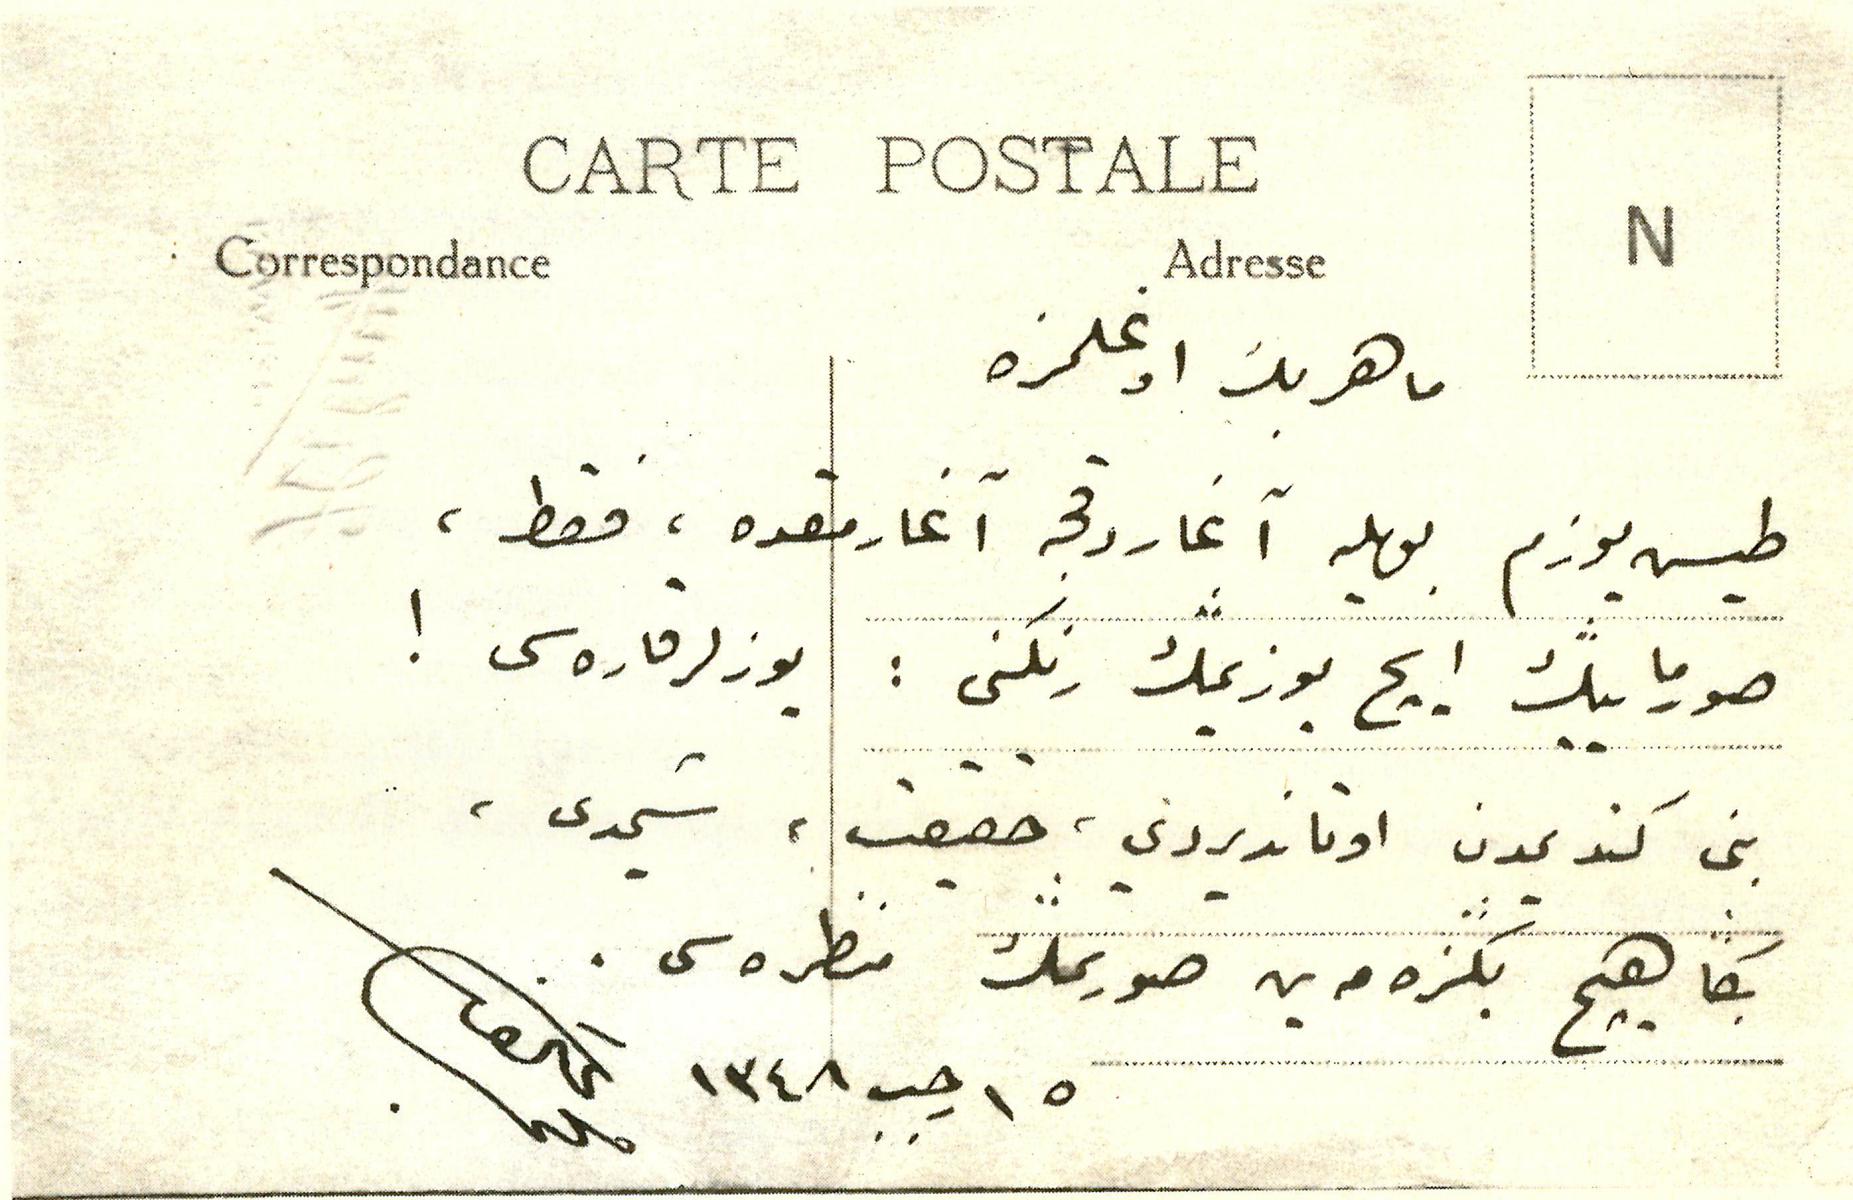 CARTE POSTALE
Correspondance
Adresse
N
ماهر بك اوغلمزه
طيش يوزم بويله آغاردقجه آغارمقده ، فقط ،
صورمايڭ ايچ يوزيمڭ رنكنى : يوزلر قاره سى !
بنى كنديمدن اوتانديردى ، حقيقت ، شيمدى ،
بڭا هيچ بڭزه مه ين صوريمڭ منظره سى . .
١٥ رجب ١٣٤٨